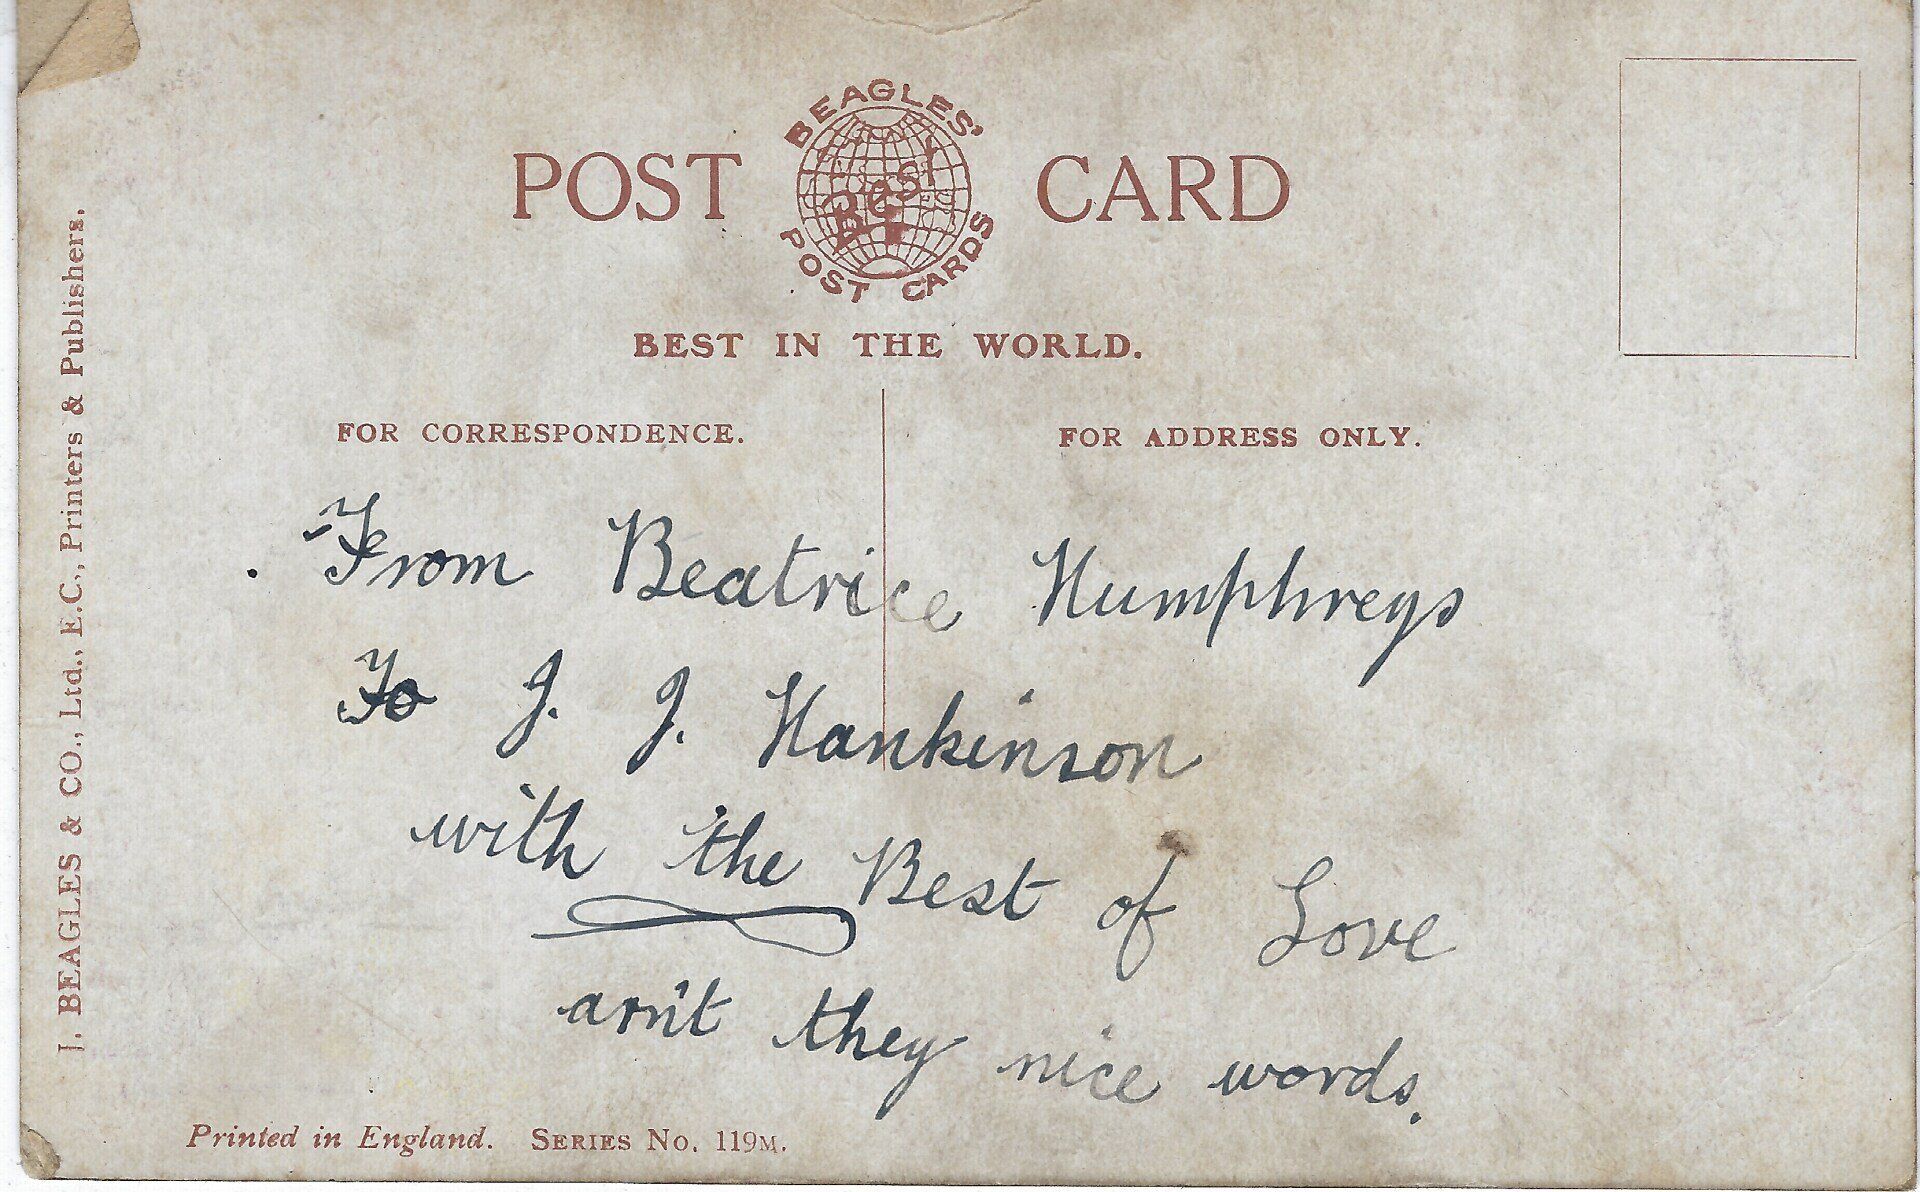 BEAGLES'
POST Best CARD
POST CARDS
BEST IN THE WORLD.
FOR CORRESPONDENCE.
FOR ADDRESS ONLY.
From Beatrice Humphreys
To J. J. Hankinson
with the Best of Love
arn't they nice words.
Printed in England. SERIES No. 119M.
J. BEAGLES & CO., Ltd., E.C., Printers & Publishers.